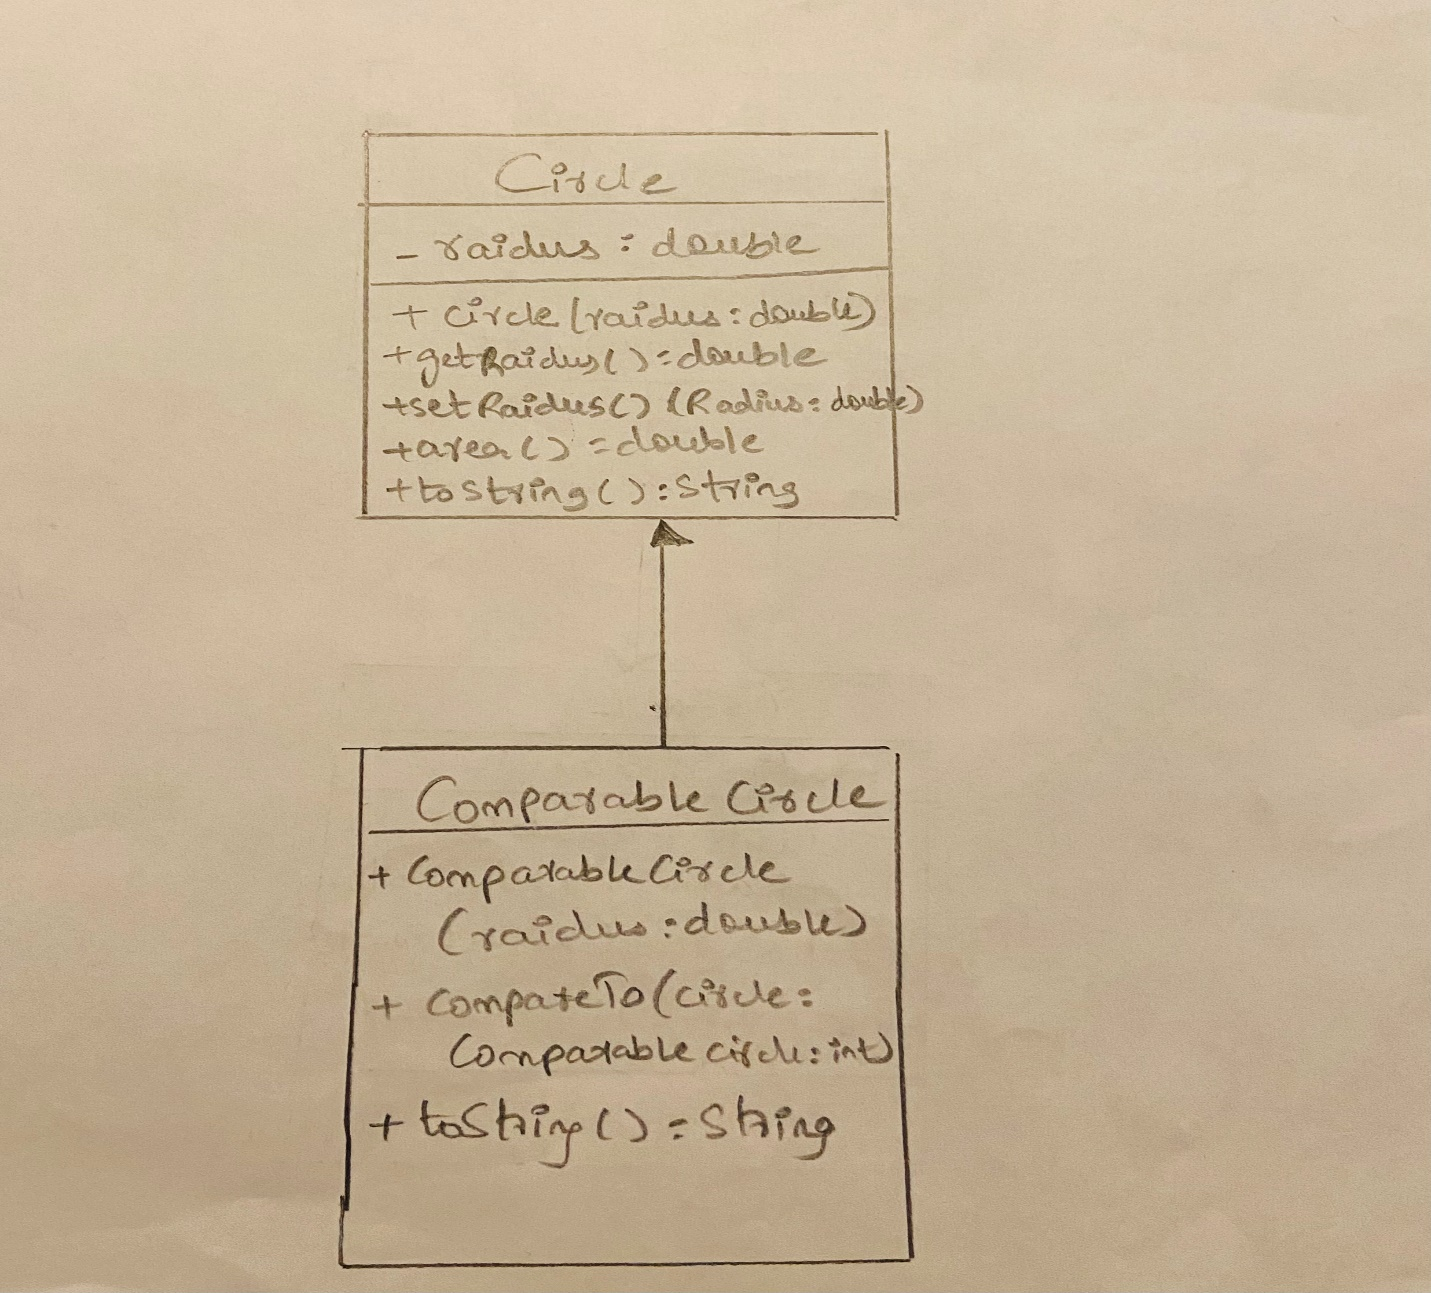 Circle
- raidus : double
+ circle (raidus : double)
+ getRaidus() : double
+ setRaidus() (Radius : double)
+ area() : double
+ toString() : String
Comparable Circle
+ Comparable Circle
(raidus : double)
+ compareTo (circle :
Comparable circle : int)
+ toString() : String